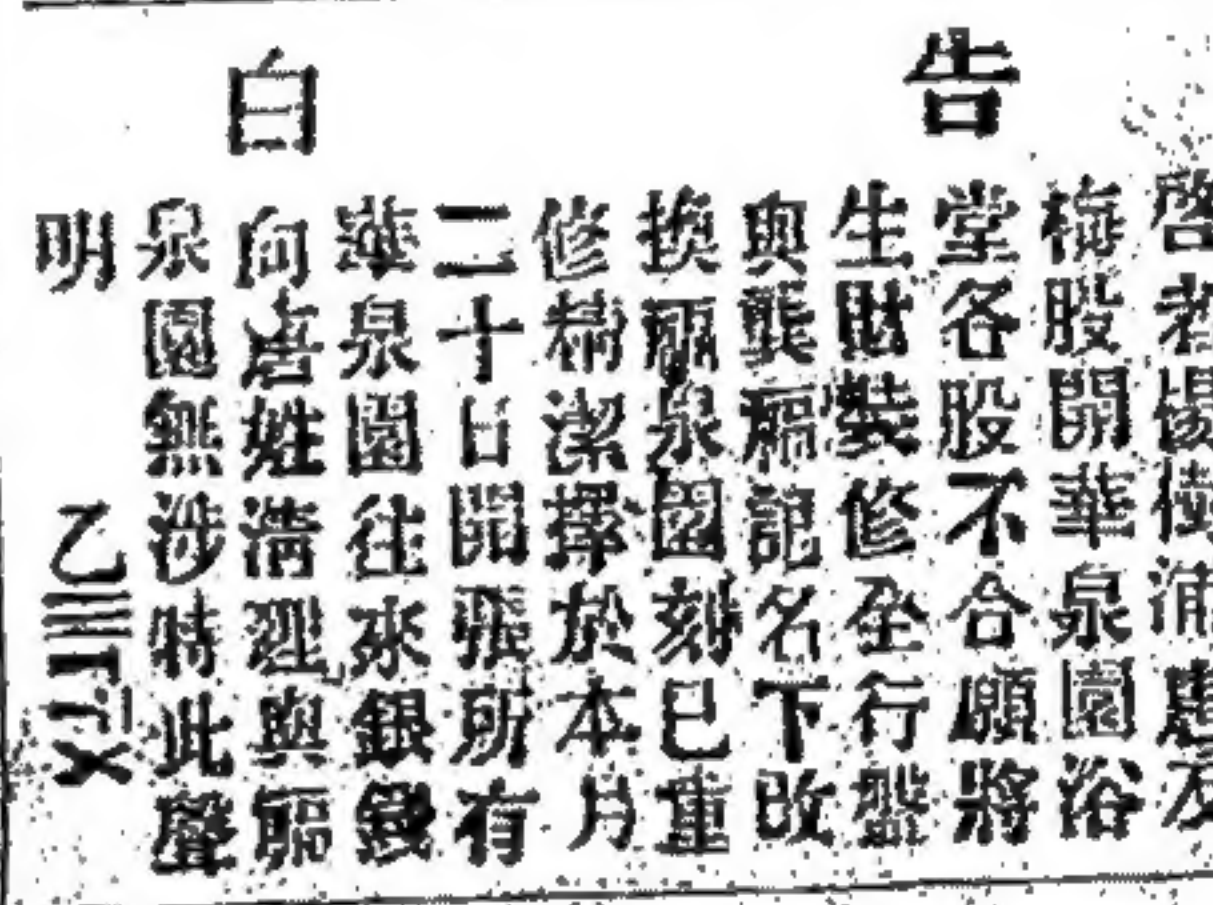 告白
啓者楊樹浦惠友
梅股開華泉園浴
堂各股不合願將
生財裝修全行盤
與龔福記名下改
換福泉園刻已重
修精潔擇於本月
二十日開張所有
華泉園往來銀錢
向唐姓清理與福
泉園無涉特此聲
明